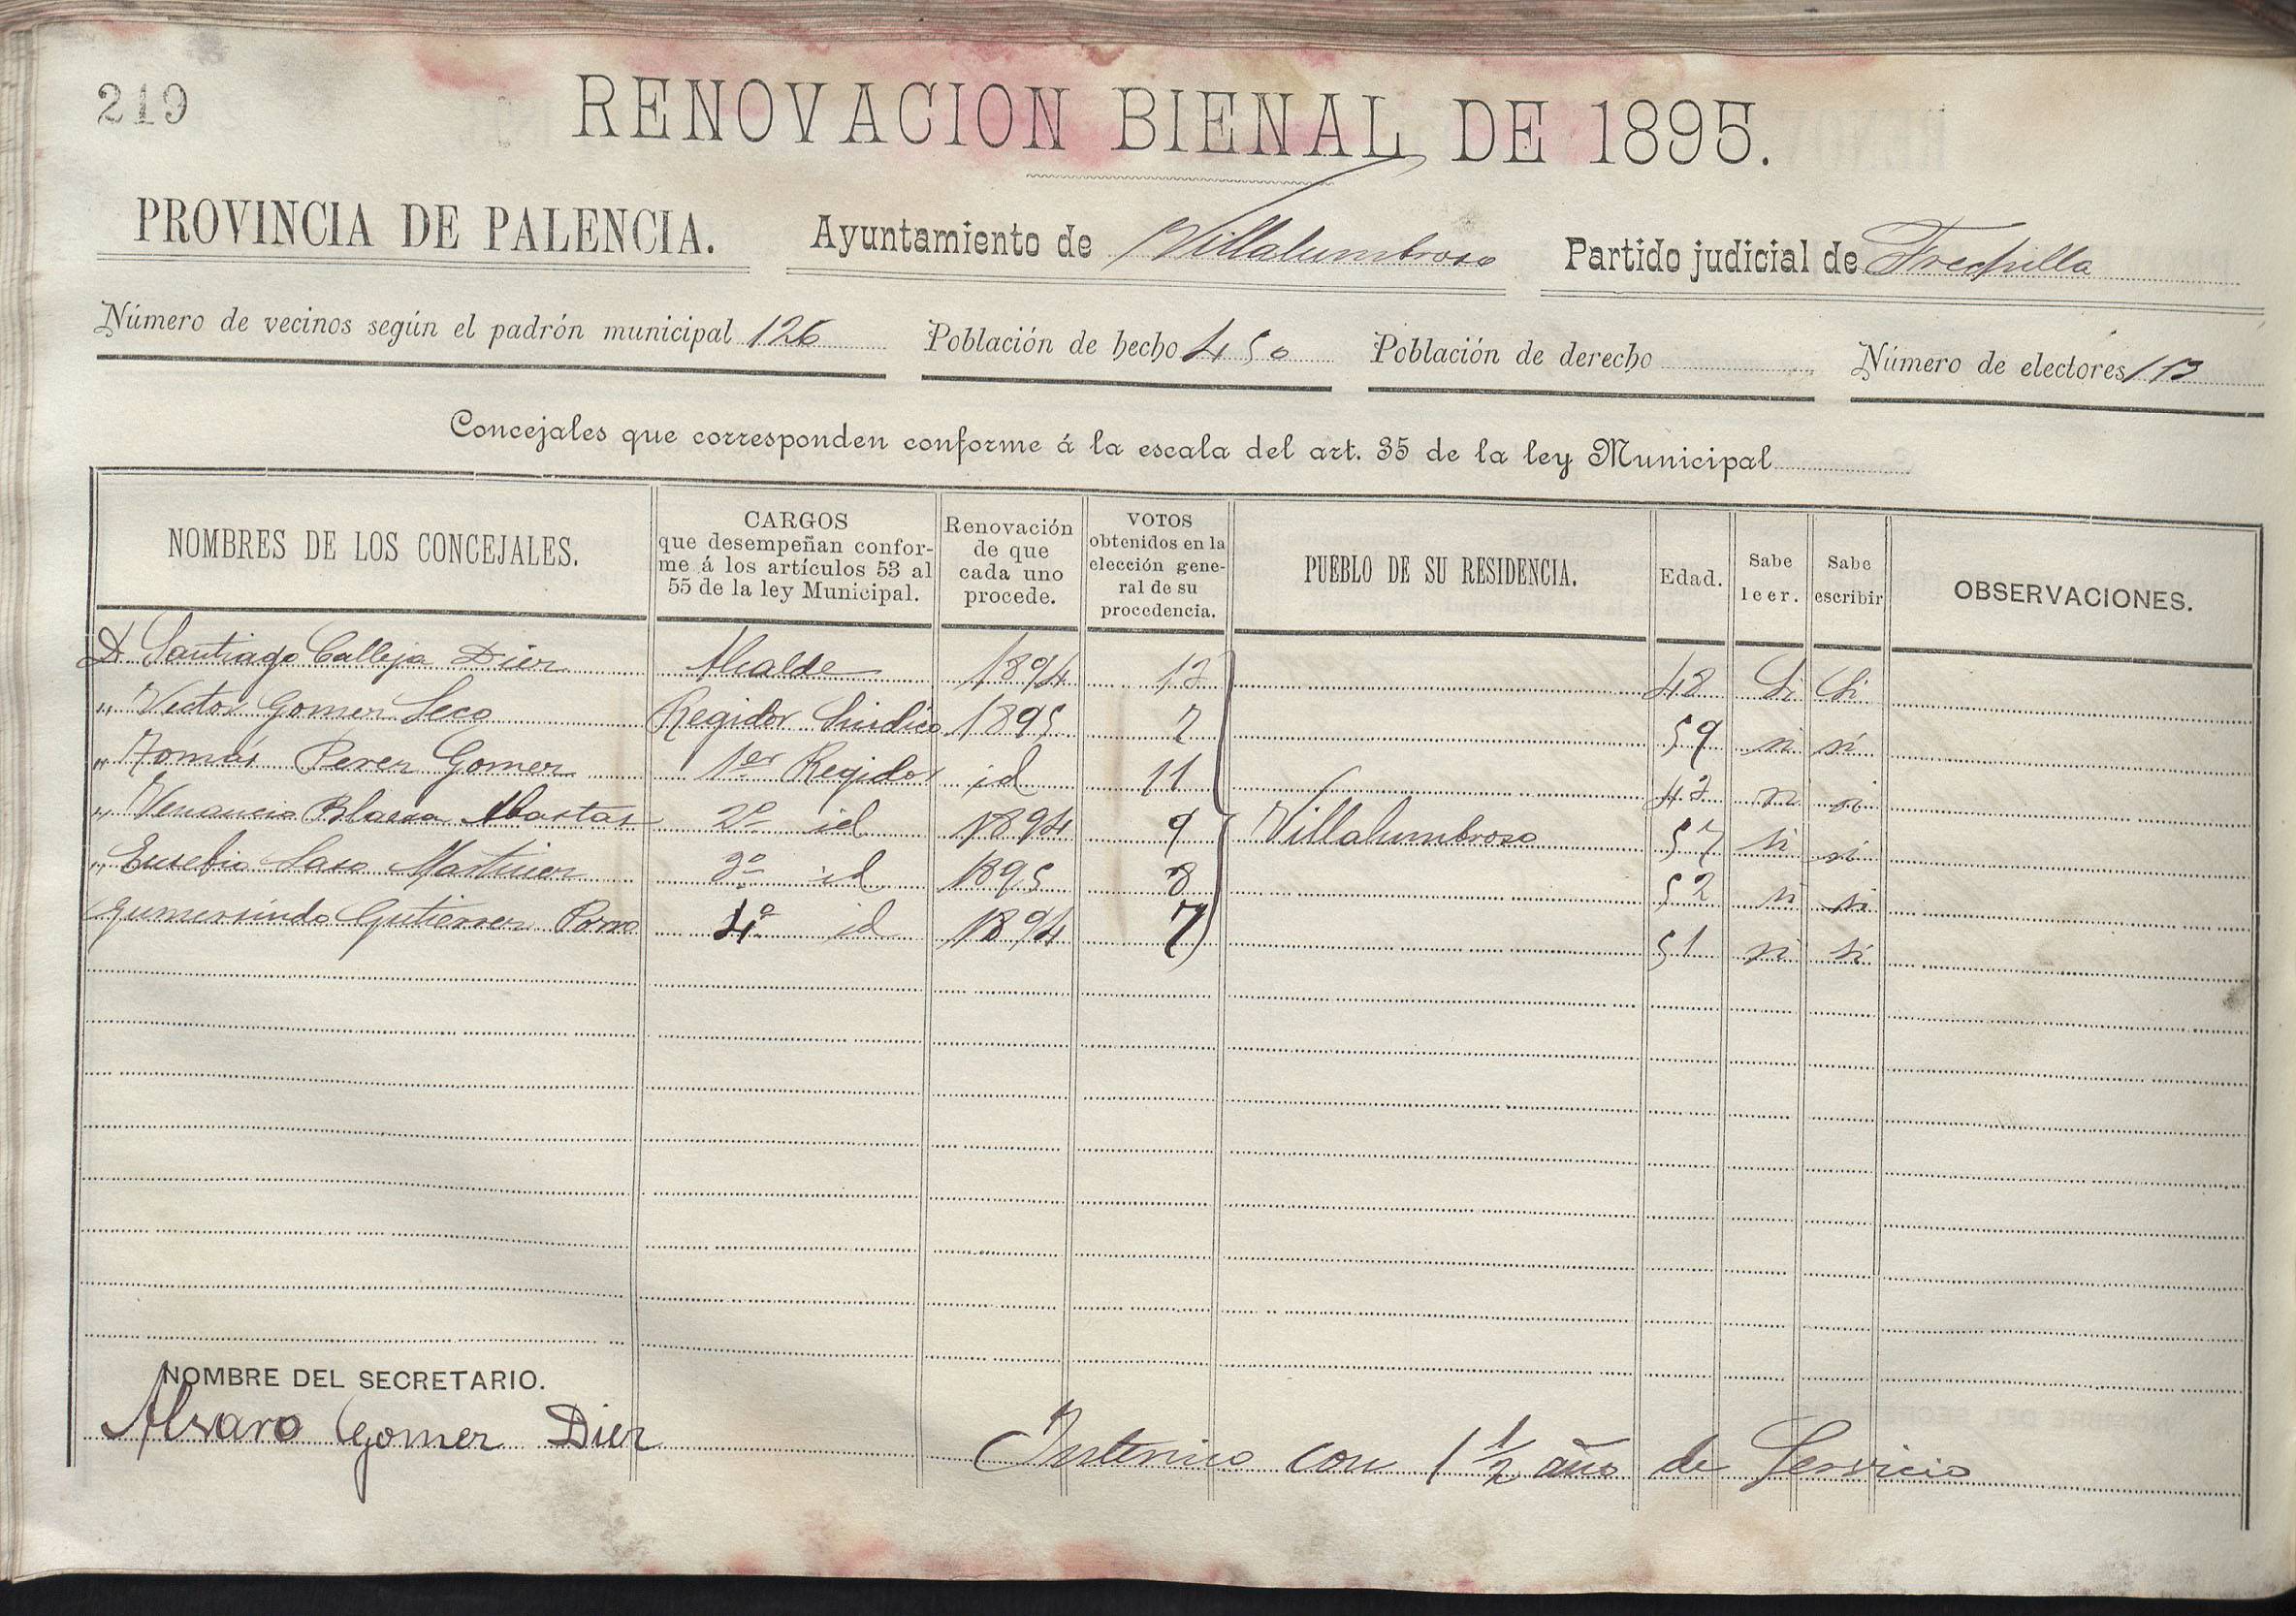 219
RENOVACION BIENAL DE 1895.
PROVINCIA DE PALENCIA. Ayuntamiento de Villalumbroso Partido judicial de Frechilla
Número de vecinos según el padrón municipal 126 Población de hecho 450 Población de derecho Número de electores 113
Concejales que corresponden conforme á la escala del art. 35 de la ley Municipal
NOMBRES DE LOS CONCEJALES. CARGOS que desempeñan confor-me á los artículos 53 al 55 de la ley Municipal. Renovación de que cada uno procede. VOTOS obtenidos en la elección gene-ral de su procedencia. PUEBLO DE SU RESIDENCIA. Edad. Sabe leer. Sabe escribir OBSERVACIONES.
D. Santiago Calleja Diez Alcalde 1894 13 48 Si Si
" Victor Gomez Seco Regidor Sindico 1895 7 59 si si
" Tomás Perez Gomez 1er Regidor id 11 43 si si
" Venancio Blanco Abastas 2º id 1894 9 Villalumbroso 57 si si
" Eusebio Laso Martinez 3º id 1895 8 52 si si
Gumersindo Gutierrez Porro 4º id 1894 7 51 si si
NOMBRE DEL SECRETARIO.
Alvaro Gomez Diez Interino con 1 1/2 año de Servicio